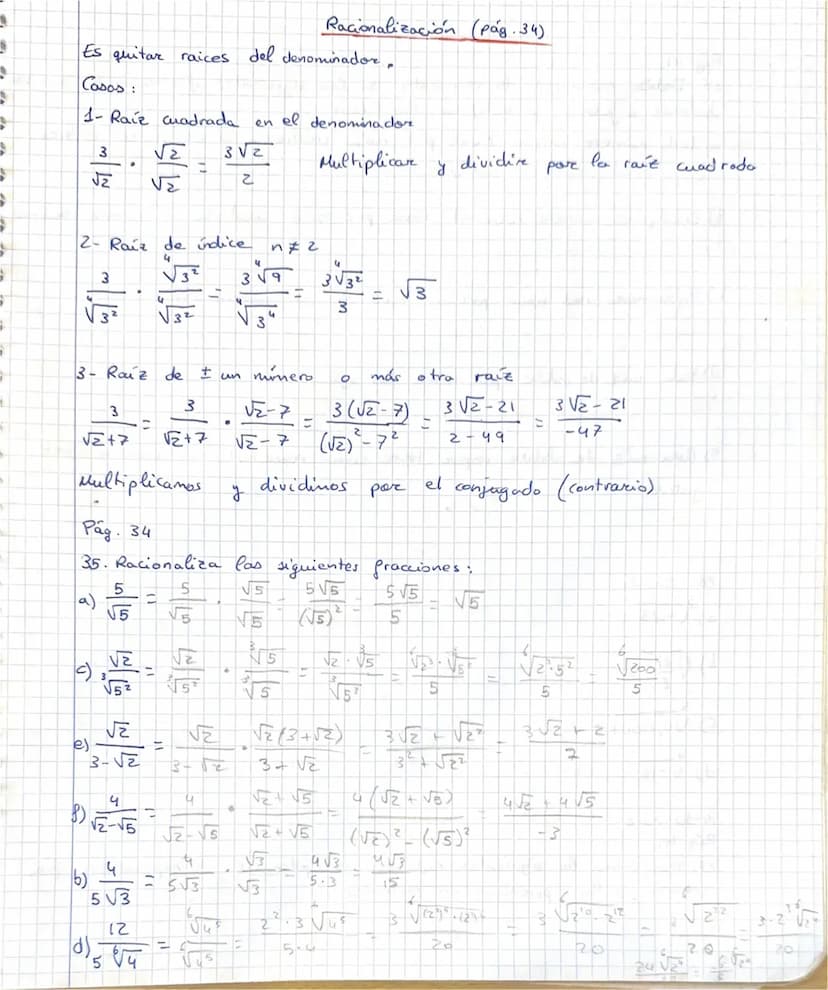 Racionalización (pág. 34)
Es quitar raices del denominador.
Casos:
1- Raíz cuadrada en el denominador
3/√2 · √2/√2 = 3√2/2 Multiplicar y dividir por la raíz cuadrada
2- Raíz de índice n ≠ 2
3/⁴√3² · ⁴√3²/⁴√3² = 3⁴√9/⁴√3⁴ = 3⁴√3²/3 = √3
3- Raíz de ± un número o más otra raíz
3/(√2+7) = 3/(√2+7) · (√2-7)/(√2-7) = 3(√2-7)/((√2)²-7²) = (3√2-21)/(2-49) = (3√2-21)/-47
Multiplicamos y dividinos por el conjugado (contrario)
Pág. 34
35. Racionaliza las siguientes fracciones:
a) 5/√5 = 5/√5 · √5/√5 = 5√5/(√5)² = 5√5/5 = √5
c) √2/³√5² = √2/³√5² · ³√5/³√5 = √2·³√5/³√5³ = ⁶√2³·⁶√5²/5 = ⁶√2³·5²/5 = ⁶√200/5
e) √2/(3-√2) = √2/(3-√2) · √2(3+√2)/(3+√2) = (3√2+√2²)/(3²+√2²) = (3√2+2)/7
f) 4/(√2-√5) = 4/(√2-√5) · (√2+√5)/(√2+√5) = 4(√2+√5)/((√2)²-(√5)²) = (4√2+4√5)/-3
b) 4/5√3 = 4/5√3 · √3/√3 = 4√3/5·3 = 4√3/15
d) 12/5⁶√4 = ⁶√4⁵/⁶√4⁵ = 2²·3⁶√4⁵/5·4